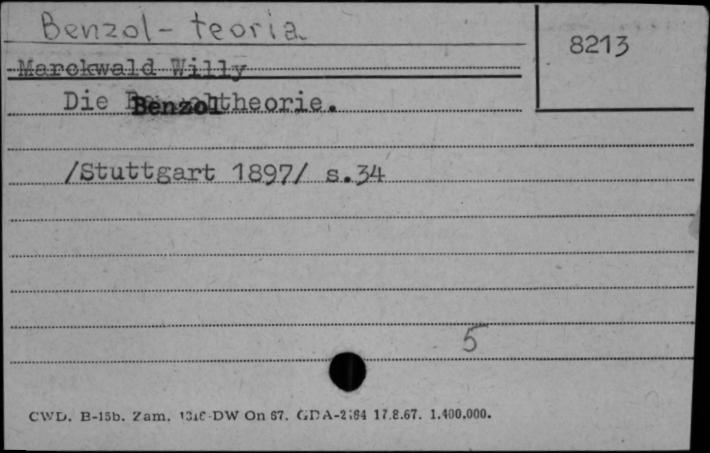 Benzol - teoria
8213
Marckwald Willy
Die Benzoltheorie.
/Stuttgart 1897/ s.34
5
CWD. B-15b. Zam. DW On 67. GDA- 17.8.67. 1.400.000.